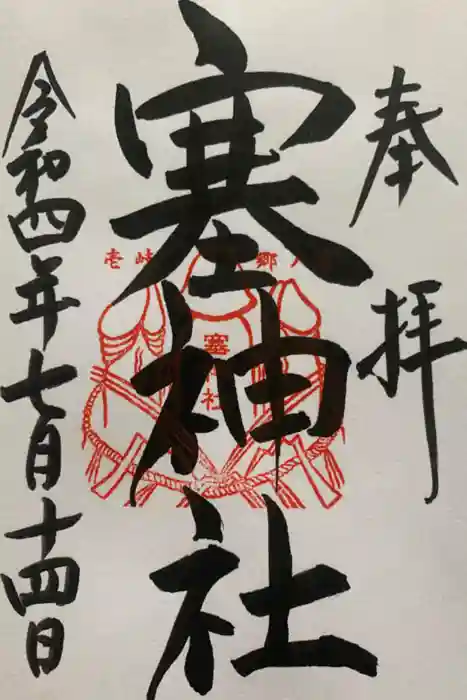 奉拝
塞神社
壱岐 郷ノ
塞 社
令和四年七月十四日